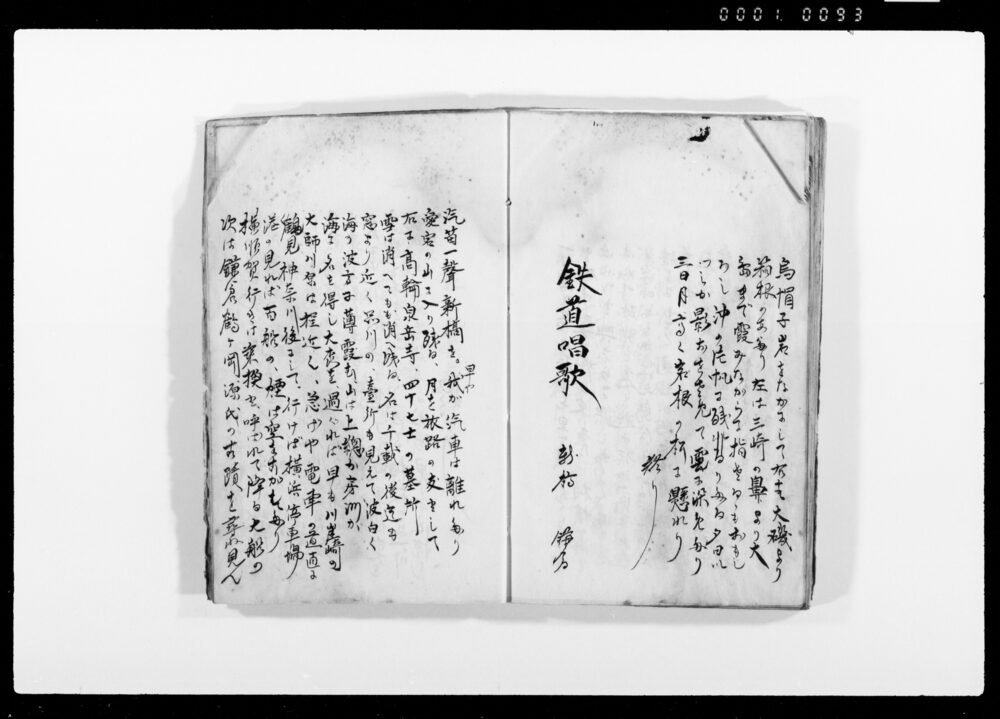 0001. 0093
烏帽子岩をなかにして右は大磯より
箱根のあたり左は三崎の鼻より大
島まで霞みながらも指さるゝもおもし
ろし沖の片帆に残
りたる夕日い
つしか影おちて見て雲に染
三日月高く岩根の松に懸れり
終り
鉄道唱歌
新橋
汽笛一聲新橋を早や我が汽車は離れたり
愛宕の山に入り残る、月を旅路の友として
右は高輪泉岳寺、四十七士の墓所
雪は消へても消へ残る、名は千載の後迄も
窓より近く品川の、臺所も見えて波白く
海の波方は薄霞む、山は上總か房洲か
海に名を得し大森を過ぐれば早も川崎の
大師川原は程近く、急げや電車の道直に
鶴見神奈川後にして、行けば横浜停車場
港の見れば百船の、煙は空をおかすまで
横須賀行きは乗換と呼ばれて降る大船の
次は鎌倉鶴ヶ岡源氏の古蹟を尋ね見ん